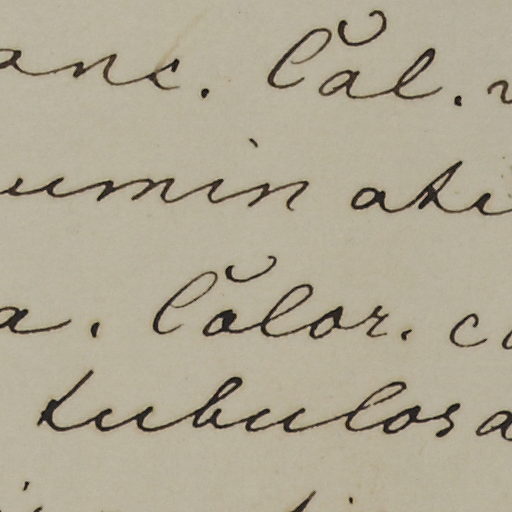 anc. Cal.
umin ati
a. Color. c
tubulosa